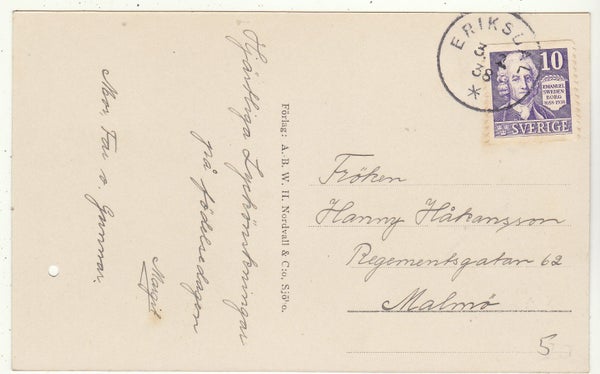 Hjärtliga Lyckönskningar
på födelsedagen
Margit
Mor, Far o. Gunnar.
Förlag: A. B. W. H. Nordvall & C:o. Sjövo.
ERIKSDAL
3.
38
*
10
EMANUEL
SWEDEN
BORG
1688-1938
SVERIGE
Fröken
Hanny Håkansson
Regementsgatan 62
Malmö
5